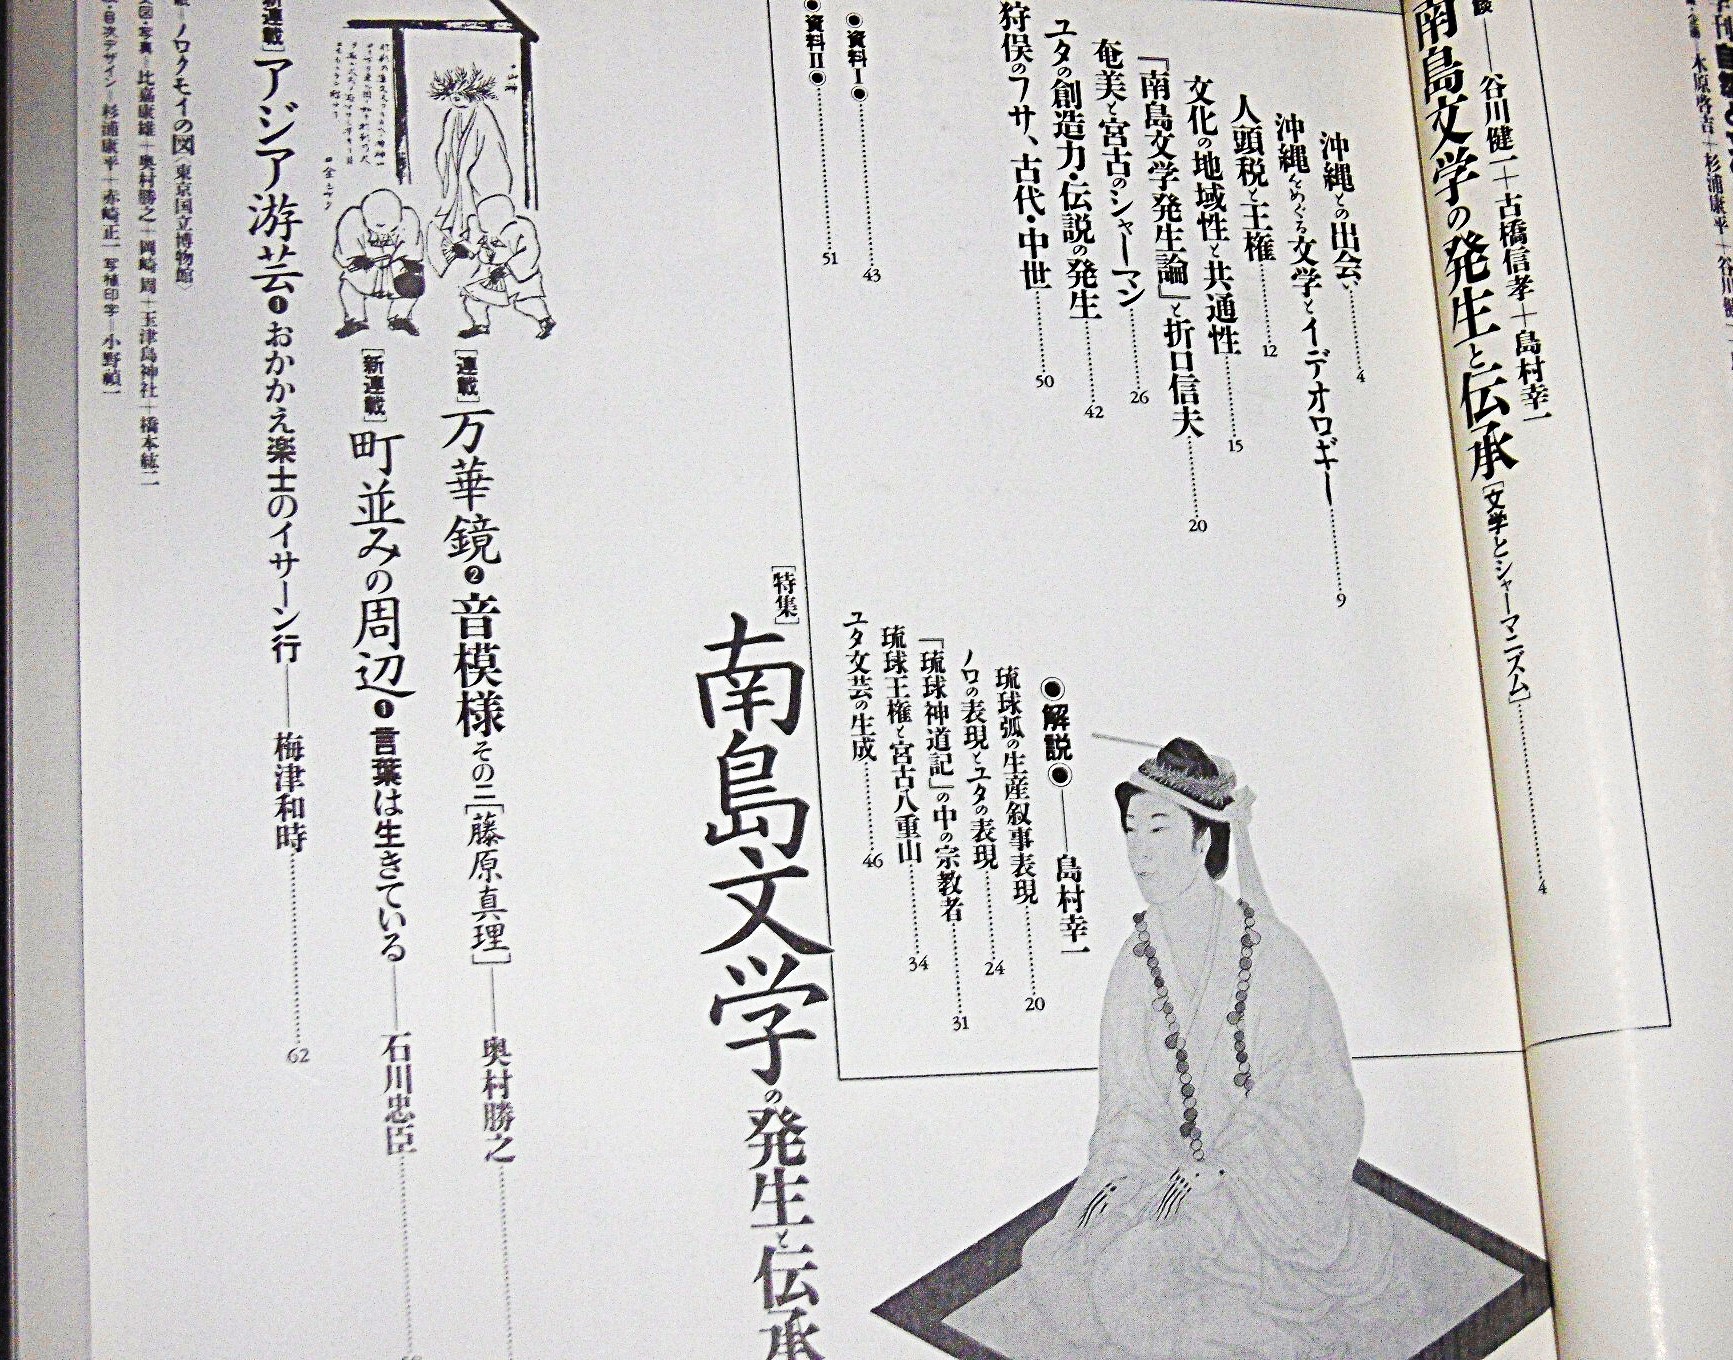 谷川健一+古橋信孝+島村幸一
南島文学の発生と伝承[文学とシャーマニズム]……4
沖縄との出会い……4
沖縄をめぐる文学とイデオロギー……9
人頭税と王権……12
文化の地域性と共通性……15
「南島文学発生論」と折口信夫……20
奄美と宮古のシャーマン……26
ユタの創造力・伝説の発生……42
狩俣のフサ、古代・中世……50
●資料Ⅰ●……43
●資料Ⅱ●……51
●解説●——島村幸一
琉球弧の生産叙事表現……20
ノロの表現とユタの表現……24
「琉球神道記」の中の宗教者……31
琉球王権と宮古八重山……34
ユタ文芸の生成……46
[特集]
南島文学の発生と伝承
[連載]万華鏡❷音模様その二[藤原真理]——奥村勝之
[新連載]町並みの周辺❶言葉は生きている——石川忠臣
新連載]アジア游芸❶おかかえ楽士のイサーン行——梅津和時……62
ノロクモイの図〈東京国立博物館〉
図・写真—比嘉康雄+奥村勝之+岡崎 周+玉津島神社+橋本紘二
目次デザイン—杉浦康平+赤崎正一 写植印字—小野禎一